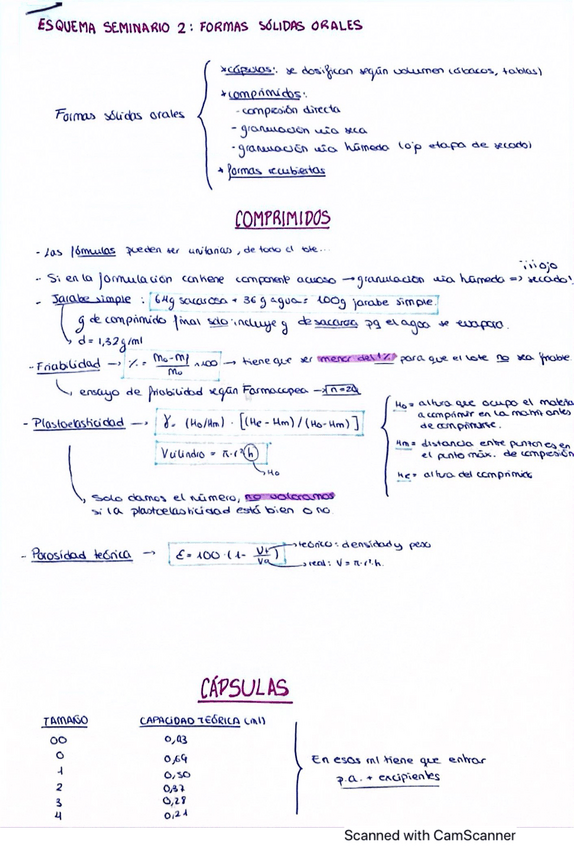 ESQUEMA SEMINARIO 2: FORMAS SÓLIDAS ORALES
Formas sólidas orales
*cápsulas: se dosifican según volumen (ábacos, tablas)
*comprimidos:
- compresión directa
- granulación vía seca
- granulación vía húmeda (ojo etapa de secado)
* formas recubiertas
COMPRIMIDOS
- Las fórmulas pueden ser unitarias, de todo el lote...
- Si en la formulación contiene componente acuoso → granulación vía húmeda => secado!
¡¡¡ojo
- Jarabe simple: 64g sacarosa + 36g agua = 100g jarabe simple.
g de comprimido final solo incluye g de sacarosa pq el agua se evapora.
d = 1,32g/ml
- Friabilidad → % = (m₀ - mf / m₀) x 100 → tiene que ser menor del 1% para que el lote no sea friable
ensayo de friabilidad según Farmacopea → n=20
- Plastoelasticidad → γ = (H₀/Hm) · [(He - Hm) / (H₀ - Hm)]
Vcilindro = π · r² · h
H₀
Solo damos el número, no valoramos
si la plastoelasticidad está bien o no.
H₀ = altura que ocupa el material
a comprimir en la matriz antes
de comprimirse.
Hm = distancia entre punzones en
el punto máx. de compresión
He = altura del comprimido
- Porosidad teórica → ε = 100 · (1 - Vt/Va)
teórico: densidad y peso
real: V = π · r² · h.
CÁPSULAS
TAMAÑO CAPACIDAD TEÓRICA (ml)
00 0,93
0 0,69
1 0,50
2 0,37
3 0,28
4 0,21
En esos ml tiene que entrar
p.a. + excipientes
Scanned with CamScanner